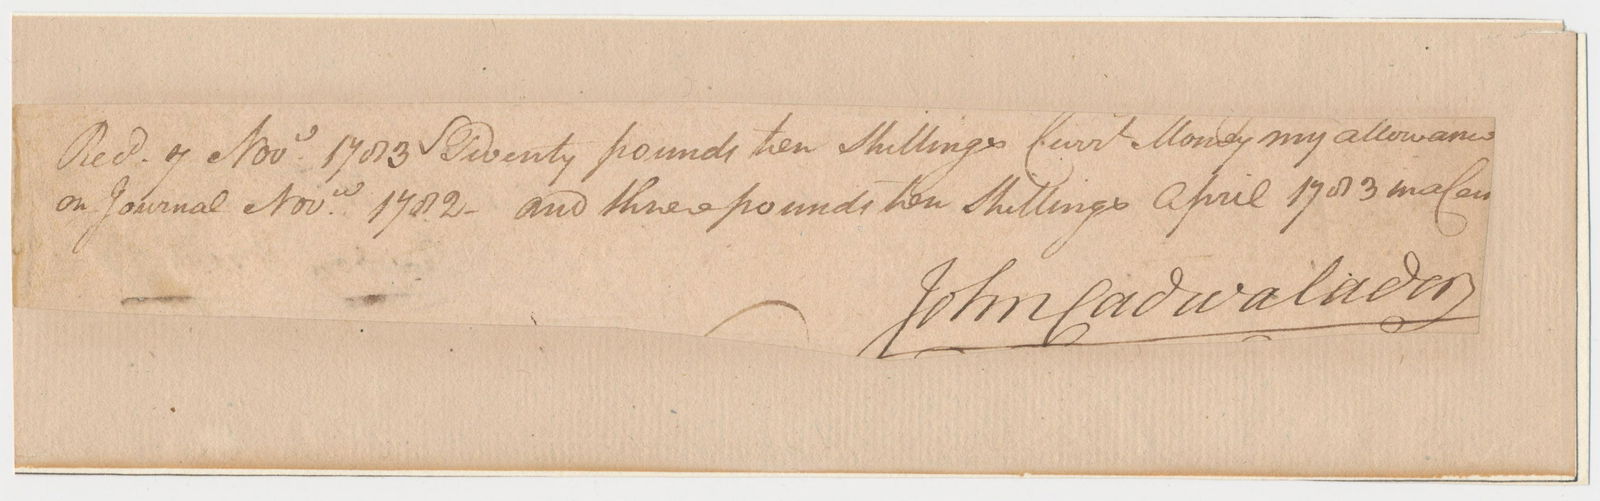 Recd. 7 Novr. 1783 Twenty pounds ten Shillings Currt Money my allowance
on Journal Novr. 1782 - and three pounds ten Shillings April 1783
John Cadwalader